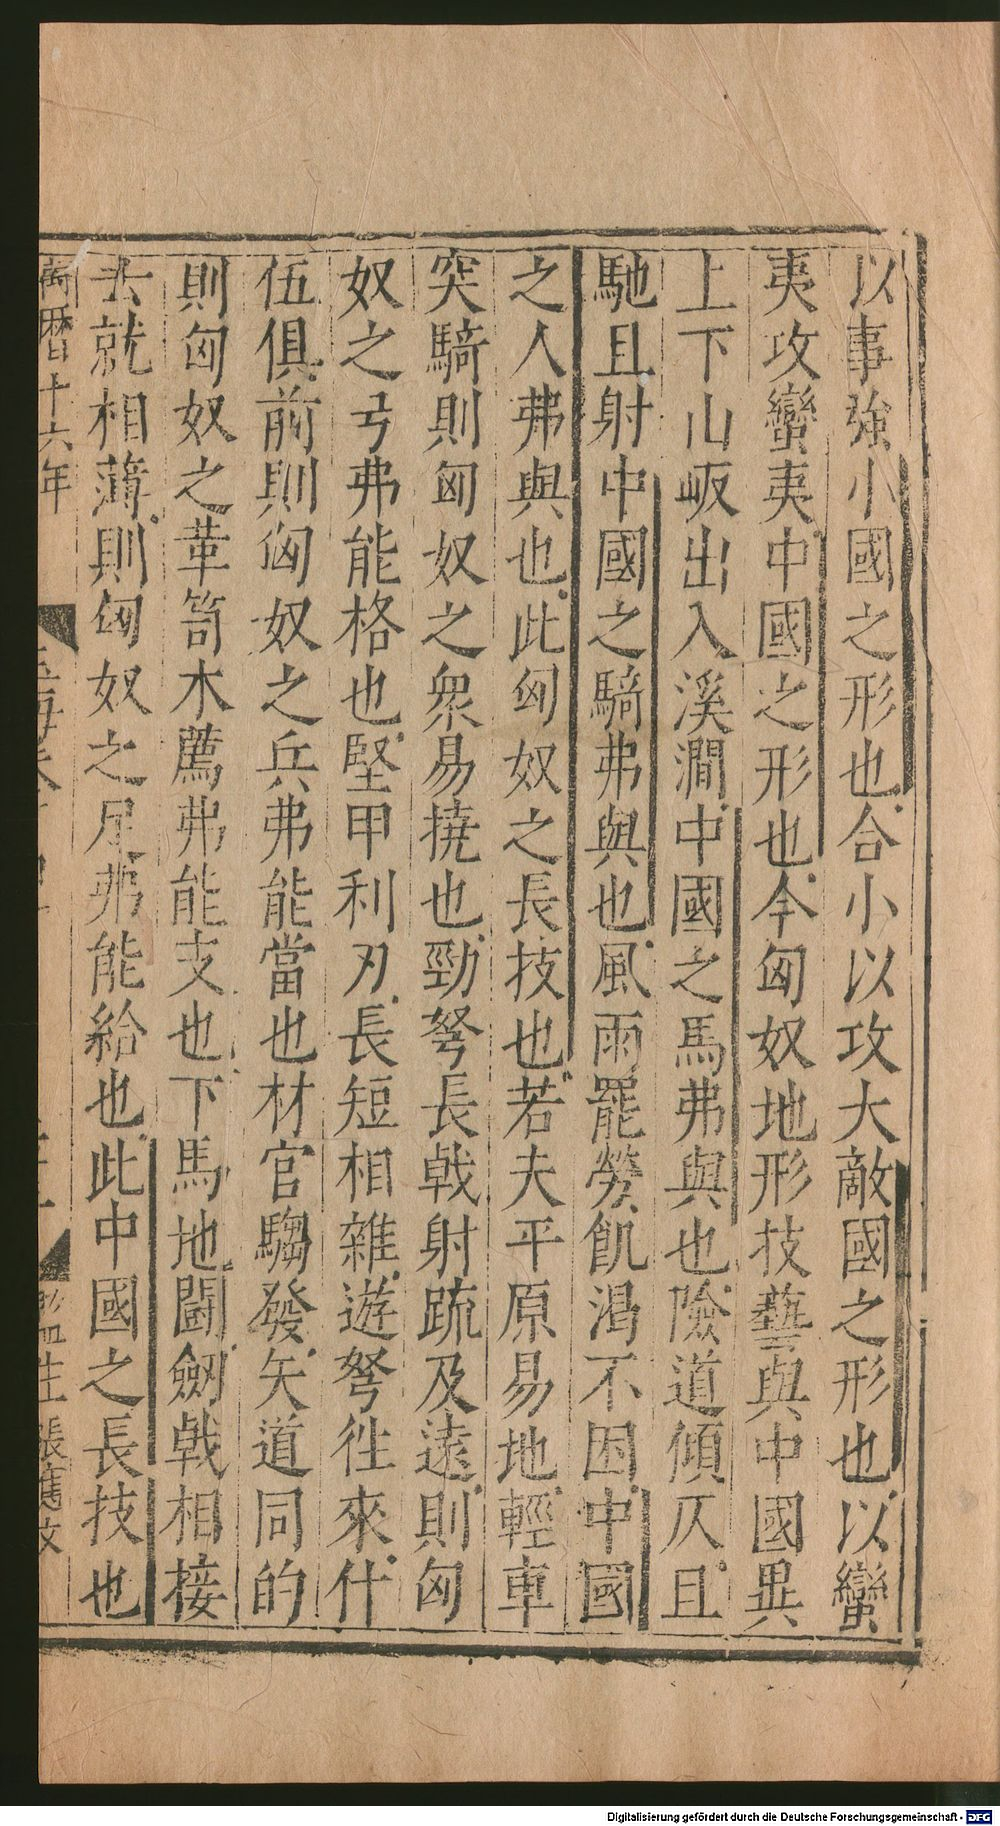 以事強小國之形也合小以攻大敵國之形也以蠻
夷攻蠻夷中國之形也今匈奴地形技藝與中國異
上下山岅出入溪澗中國之馬弗與也險道傾仄且
馳且射中國之騎弗與也風雨罷勞飢渴不困中國
之人弗與也此匈奴之長技也若夫平原易地輕車
突騎則匈奴之衆易撓也勁弩長戟射疏及遠則匈
奴之弓弗能格也堅甲利刃長短相雜遊弩徃來什
伍俱前則匈奴之兵弗能當也材官騶發矢道同的
則匈奴之革笥木薦弗能支也下馬地鬬劒戟相接
去就相薄則匈奴之足弗能給也此中國之長技也
萬曆十六年
監生張應文
Digitalisierung gefördert durch die Deutsche Forschungsgemeinschaft - DFG